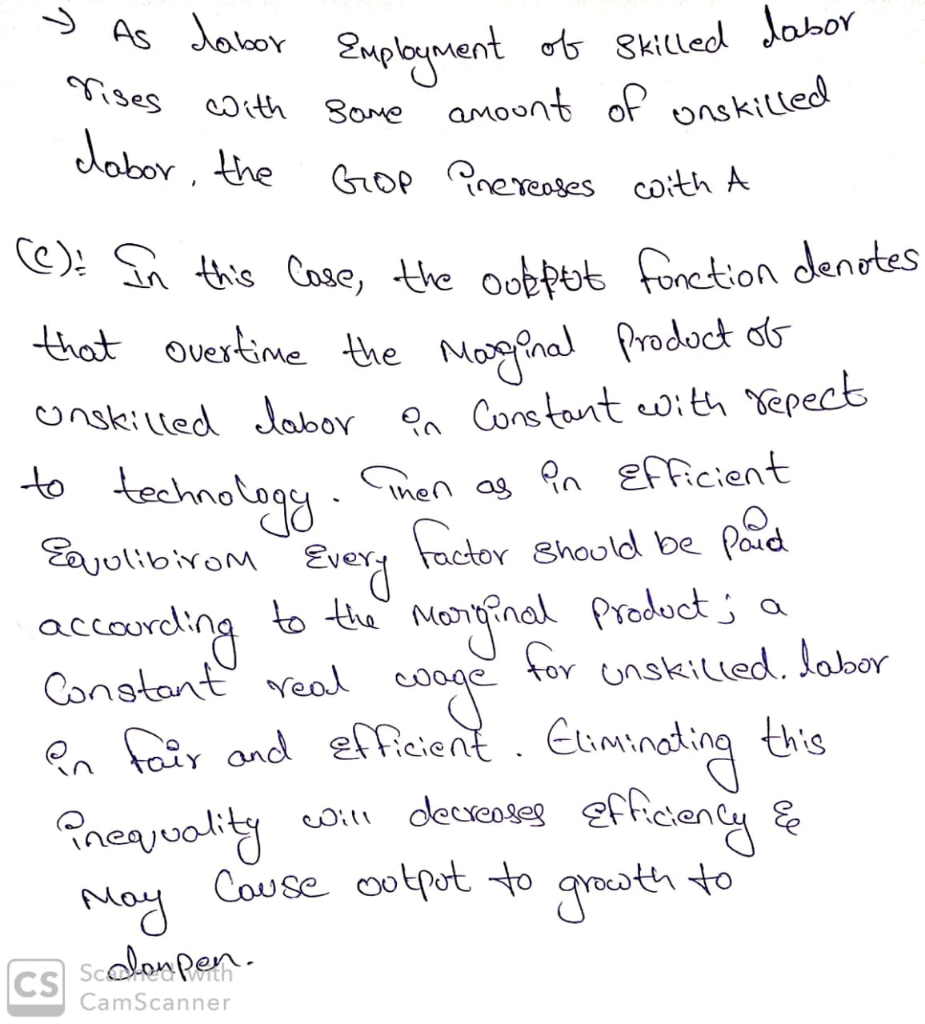 → As labor Employment of skilled labor
rises with same amount of unskilled
labor, the GDP increases with A
(c): In this Case, the output function denotes
that overtime the Marginal Product of
unskilled labor in Constant with repect
to technology. Then as in Efficient
Equilibirum Every factor should be Paid
accourding to the Marginal Product; a
Constant real wage for unskilled. labor
in fair and efficient. Eliminating this
inequuality will decreases efficiency &
May Cause output to growth to
danpen.
CS Scanned with
CamScanner